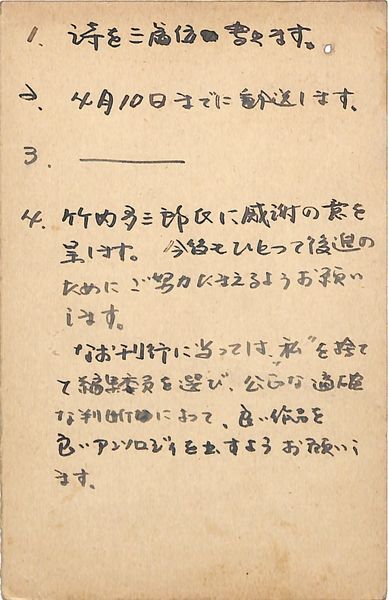 1. 詩を三篇位書きます。
2. 4月10日までに郵送します。
3. ―――
4. 竹内多三郎氏に感謝の意を
呈します。今後もひとつて後進の
ために ご努力下さるようお願い
します。
なお刊行に当っては、“私”を捨て
て編集委員を選び、公正な適確
な判断によって、良い作品を
良いアンソロジイを出すようお願いし
ます。